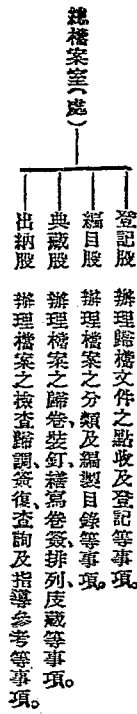 總檔案室（處）
登記股　辦理歸檔文件之點收及登記等事項。
編目股　辦理檔案之分類及編製目錄等事項。
典藏股　辦理檔案之歸卷、裝釘、繕寫卷簽、排列、庋藏等事項。
出納股　辦理檔案之檢查歸調、簽復、查詢及指導參考等事項。